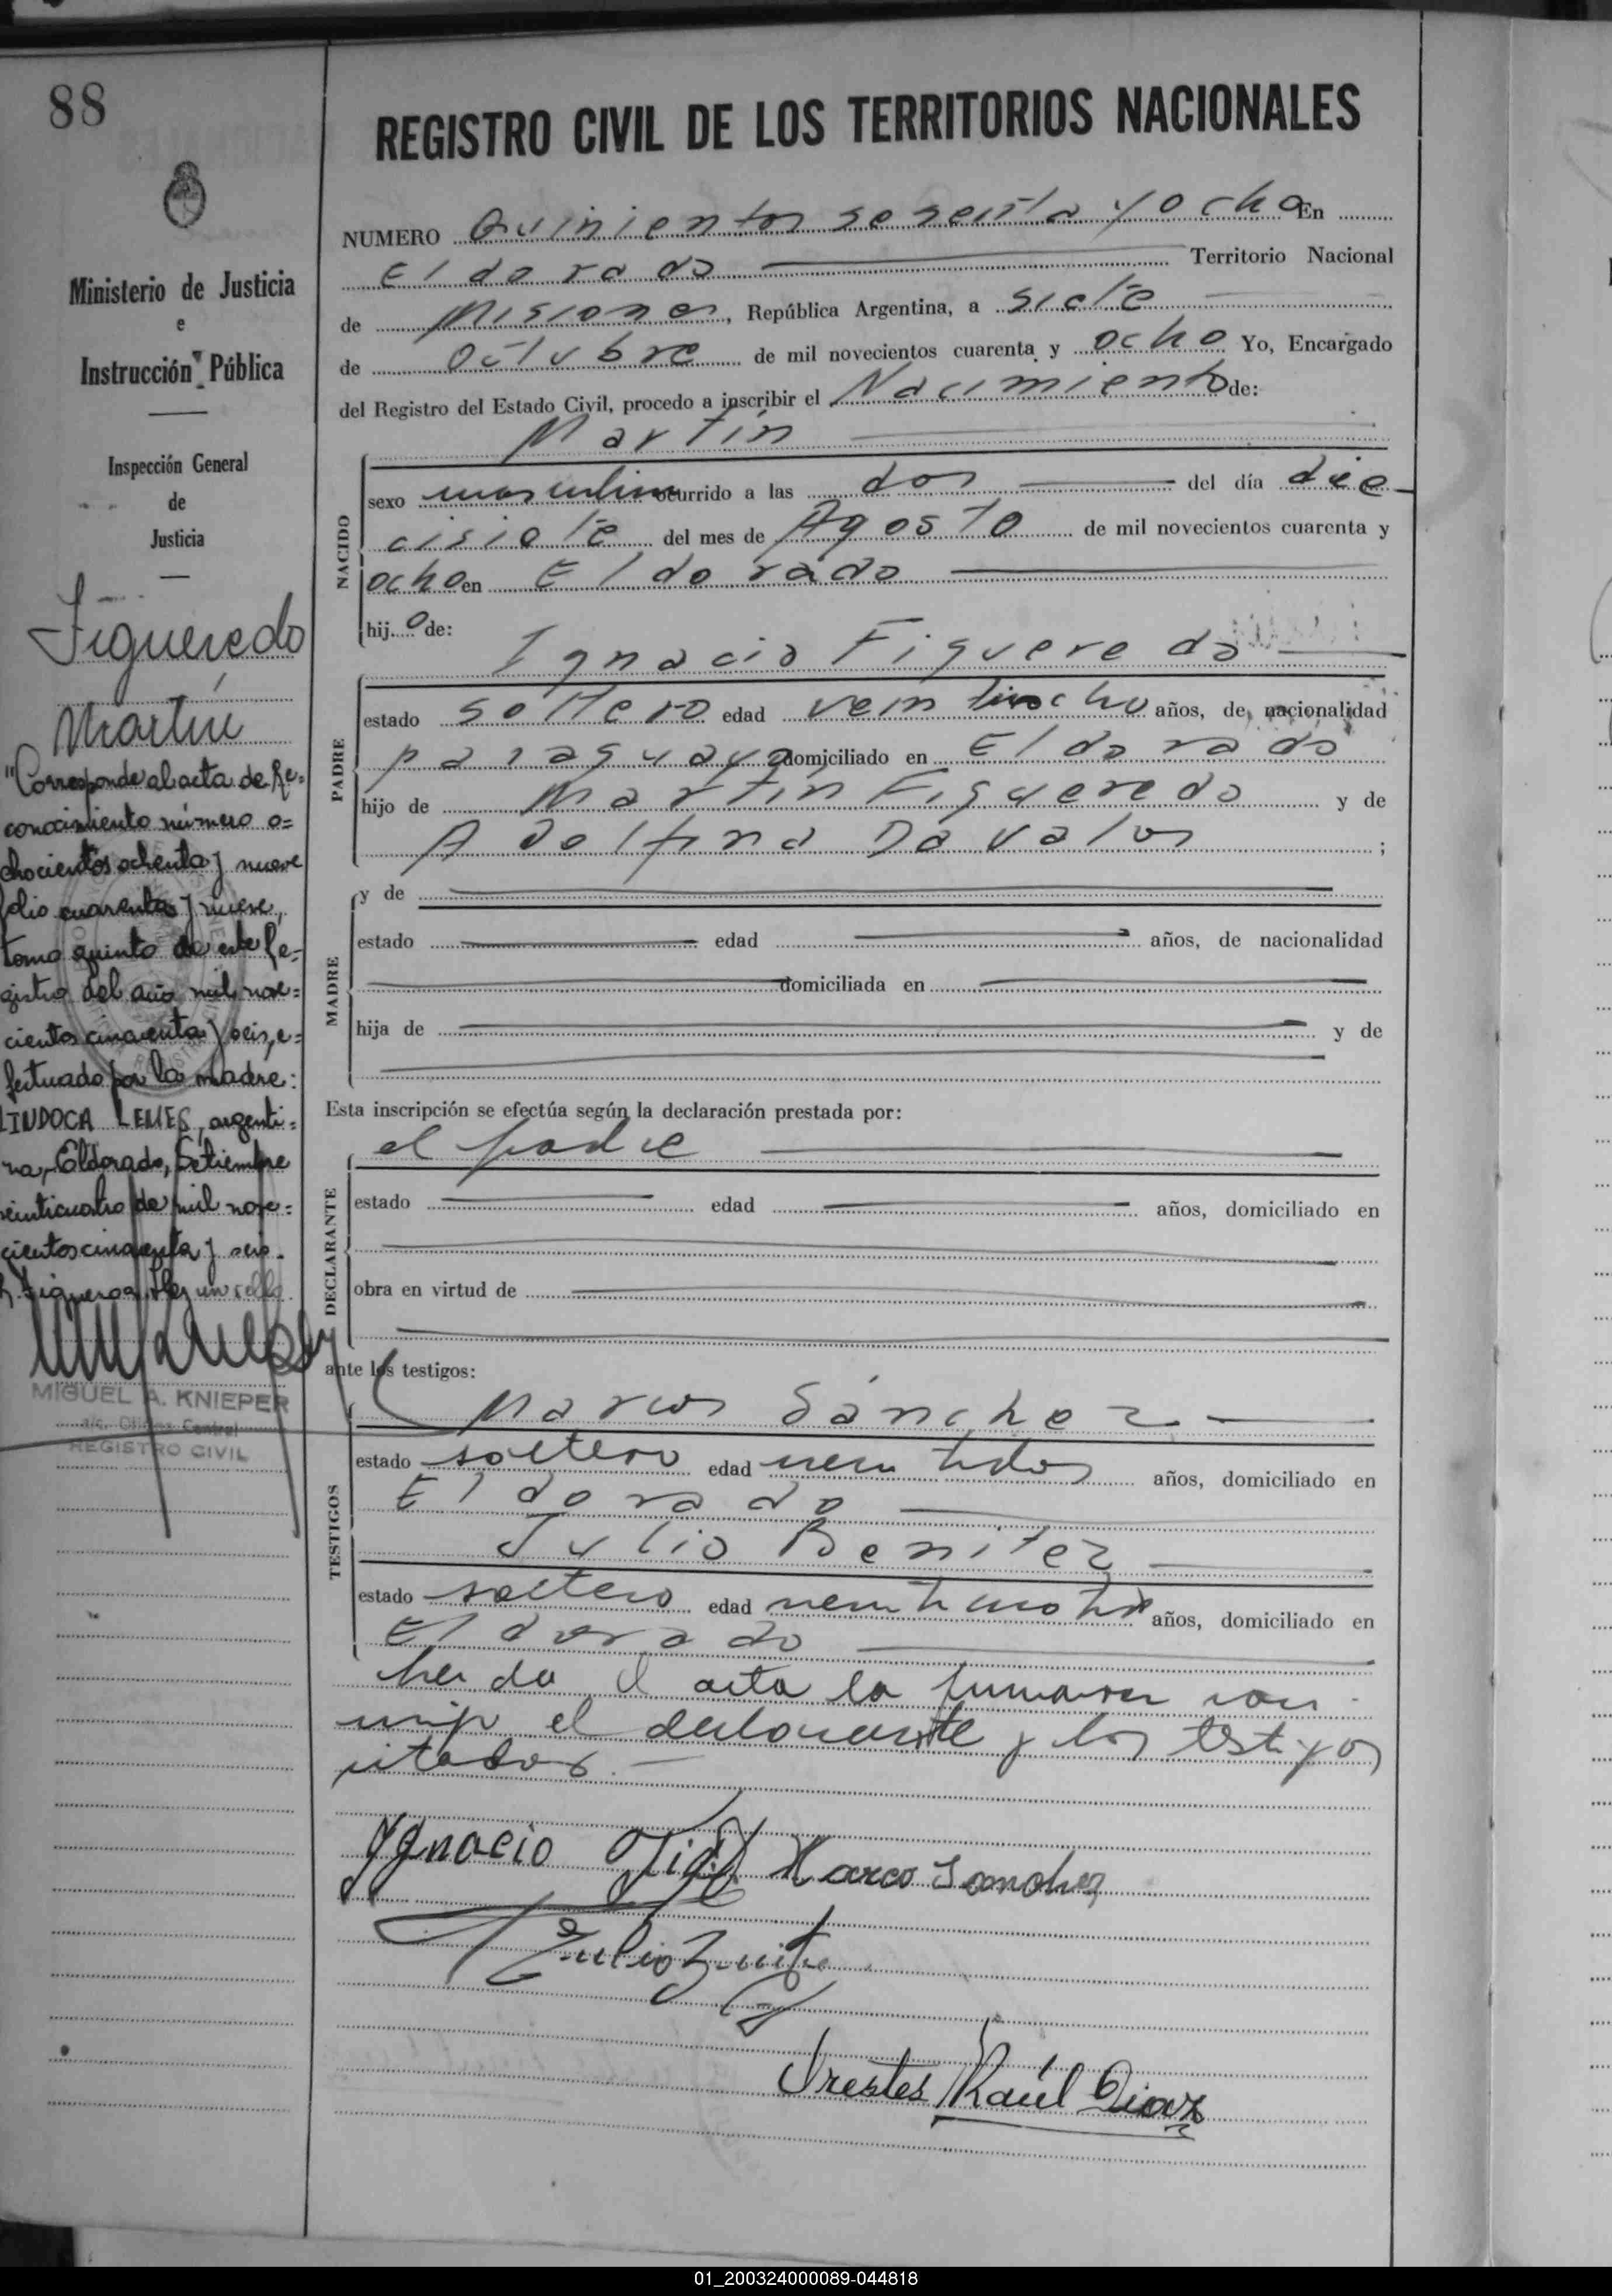 88
Ministerio de Justicia
e
Instrucción Pública
Inspección General
de
Justicia
Figueredo
Martín
"Corresponde al acta de Re=
conocimiento número o=
chocientos ochenta y nueve
folio cuarenta y nueve,
tomo quinto de este Re=
gistro del año mil nove=
cientos cincuenta y seis, e=
fectuado por la madre:
LINDOCA LEMES, argenti=
na, Eldorado, Setiembre
veinticuatro de mil nove=
cientos cincuenta y seis.
Figueroa. Hay un sello
MIGUEL A. KNIEPER
a/c. Oficina Central
REGISTRO CIVIL
REGISTRO CIVIL DE LOS TERRITORIOS NACIONALES
NUMERO Quinientos sesenta y ocho En
Eldorado Territorio Nacional
de Misiones, República Argentina, a siete
de octubre de mil novecientos cuarenta y ocho Yo, Encargado
del Registro del Estado Civil, procedo a inscribir el Nacimiento de:
Martín
NACIDO
sexo masculino ocurrido a las dos del día die-
cisiete del mes de Agosto de mil novecientos cuarenta y
ocho en Eldorado
hijo de:
Ignacio Figueredo
PADRE
estado soltero edad veintiocho años, de nacionalidad
paraguaya domiciliado en Eldorado
hijo de Martín Figueredo y de
Adolfina Davalos ;
MADRE
y de
estado edad años, de nacionalidad
domiciliada en
hija de y de
Esta inscripción se efectúa según la declaración prestada por:
el padre
DECLARANTE
estado edad años, domiciliado en
obra en virtud de
ante los testigos:
Marcos Sánchez
TESTIGOS
estado soltero edad veintidos años, domiciliado en
Eldorado
Julio Benitez
estado soltero edad veinticuatro años, domiciliado en
Eldorado
Leida el acta la firmaron con-
migo el declarante y los testigos
citados.—
Ygnacio Fig
Marco Sanchez
Julio Benitez
Orestes Raúl Diaz
01_200324000089-044818